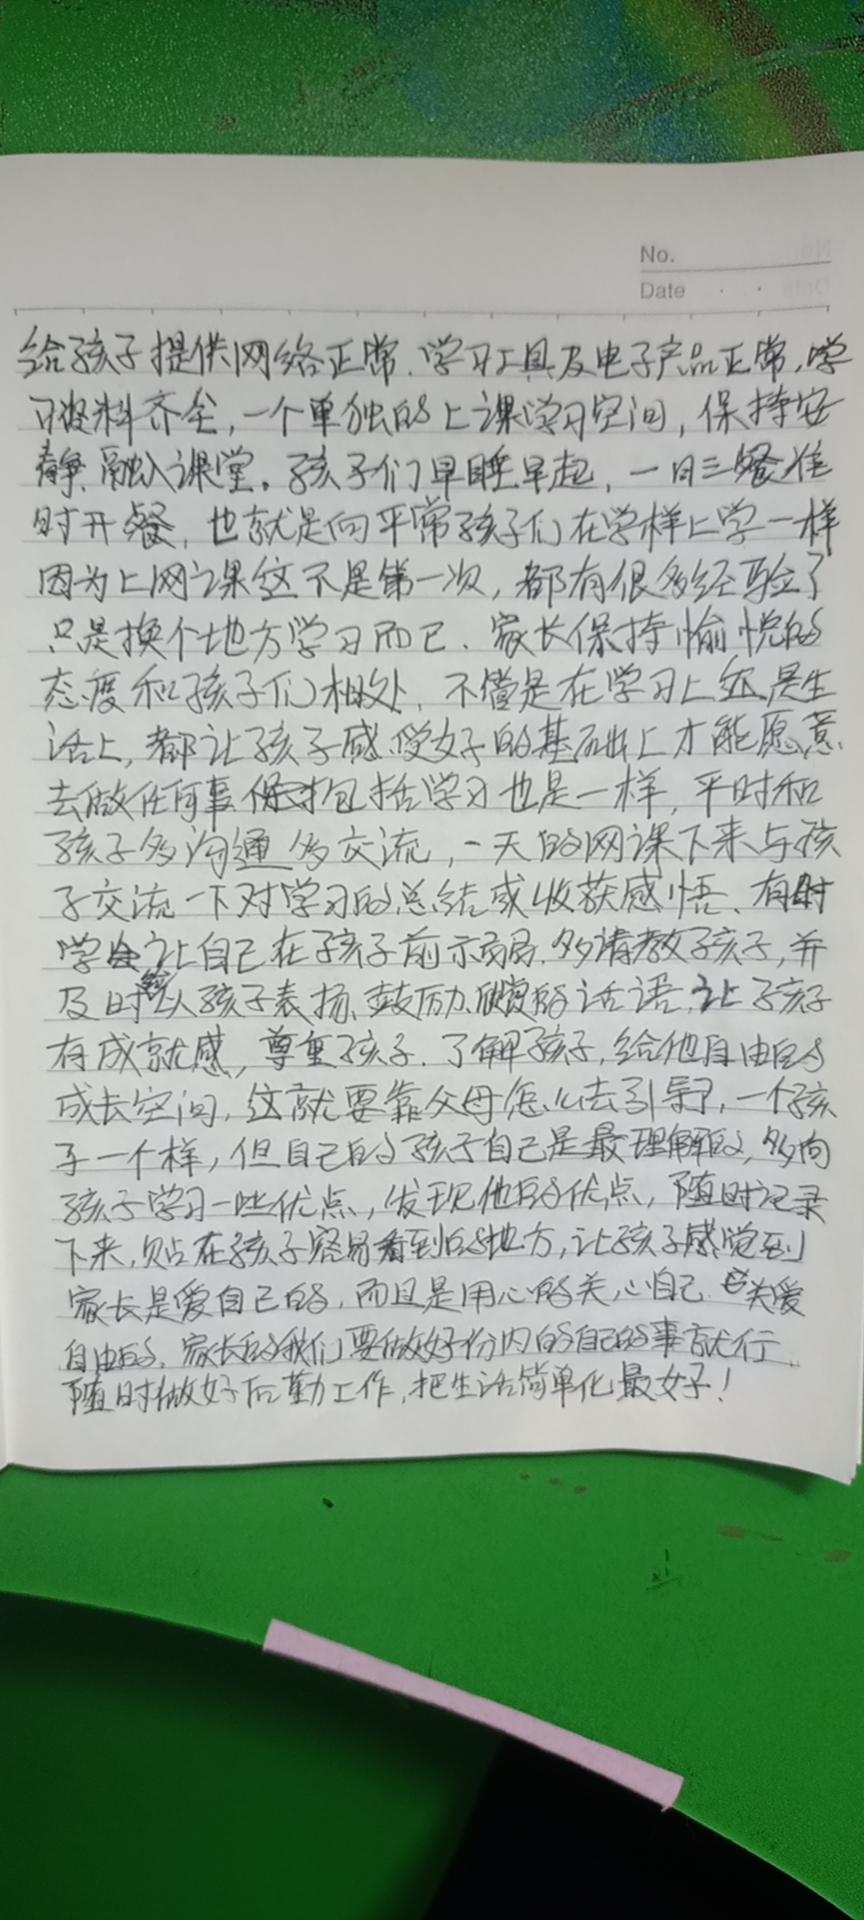 No.
Date
给孩子提供网络正常、学习工具及电子产品正常,学
习资料齐全,一个单独的上课学习空间,保持安
静、融入课堂。孩子们早睡早起,一日三餐准
时开餐,也就是向平常孩子们在学样上学一样
因为上网课这不是第一次,都有很多经验了
只是换个地方学习而已、家长保持愉悦的
态度和孩子们相处、不管是在学习上还是生
活上,都让孩子感受好的基础上才能愿意
去做任何事包括学习也是一样,平时和
孩子多沟通多交流,一天的网课下来与孩
子交流一下对学习的总结或收获感悟、有时
学会让自己在孩子前示弱、多请教孩子,并
及时给以孩子表扬、鼓励、欣赏的话语,让孩子
有成就感,尊重孩子、了解孩子,给他自由的
成长空间,这就要靠父母怎么去引导了,一个孩
子一个样,但自己的孩子自己是最理解的,多向
孩子学习一些优点,发现他的优点,随时记录
下来,贴在孩子容易看到的地方,让孩子感觉到
家长是爱自己的,而且是用心的关心自己、关爱
自由的、家长的我们要做好份内的自己的事就行、
随时做好后勤工作,把生活简单化最好!